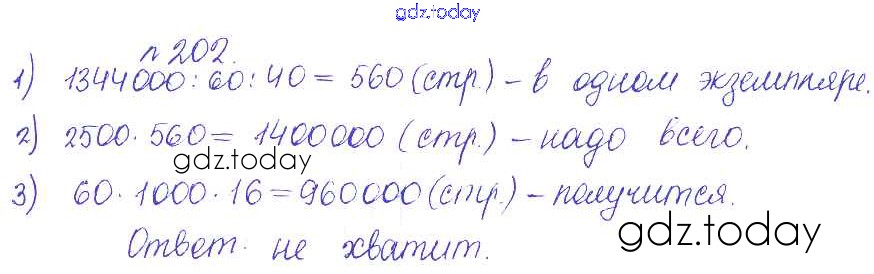 gdz.today
n 202.
1) 1344000:60:40=560(стр.)-в одном экземпляре.
2) 2500·560=1400000(стр.)-надо всего.
gdz.today
3) 60·1000·16=960000(стр.)-получится.
Ответ. не хватит.
gdz.today